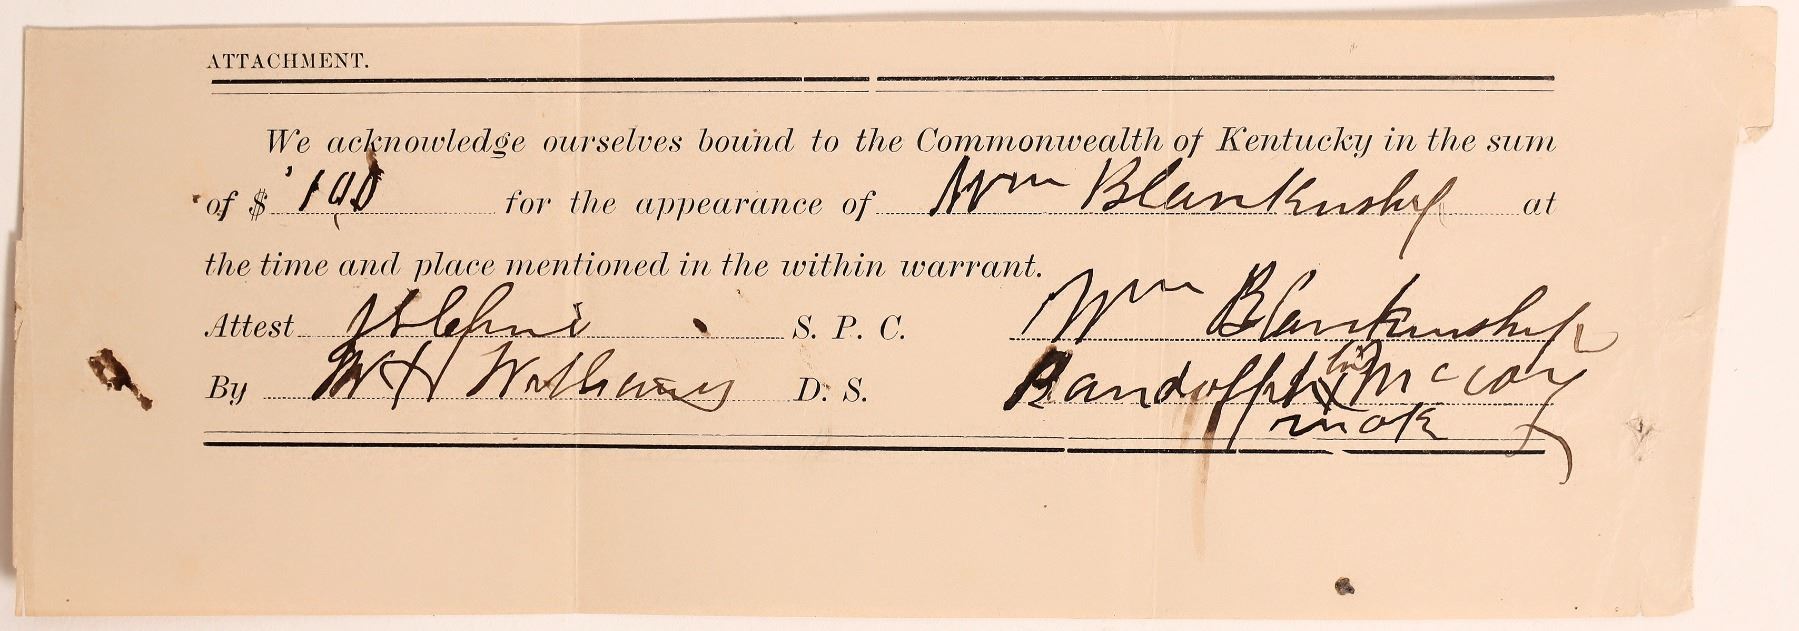 ATTACHMENT.
We acknowledge ourselves bound to the Commonwealth of Kentucky in the sum
of $ 100 for the appearance of Wm Blankenship at
the time and place mentioned in the within warrant.
Attest S. P. C. Wm Blankenship
By W H Williams D. S. Randolph his x McCoy
mark